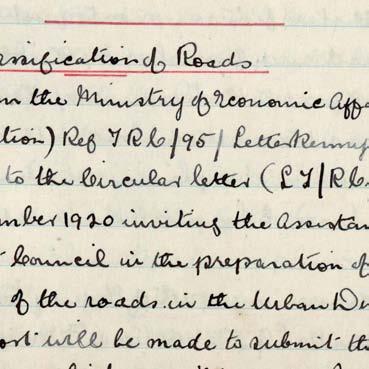 ssification of Roads
the Ministry of Economic Affa
tion) Ref T R b/95/Letterkenny
to the Circular letter (LT/Rb
mber 1920 inviting the Assistan
Council in the preparation of
of the roads in the Urban Di
ort will be made to submit the